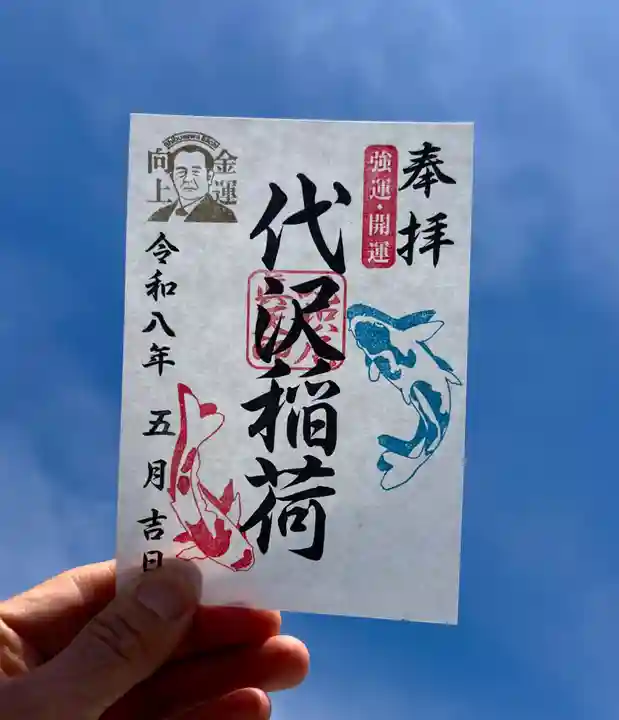 奉拝
強運・開運
代沢稲荷
金運
向上
Shibusawa Eiichi
令和八年 五月吉日